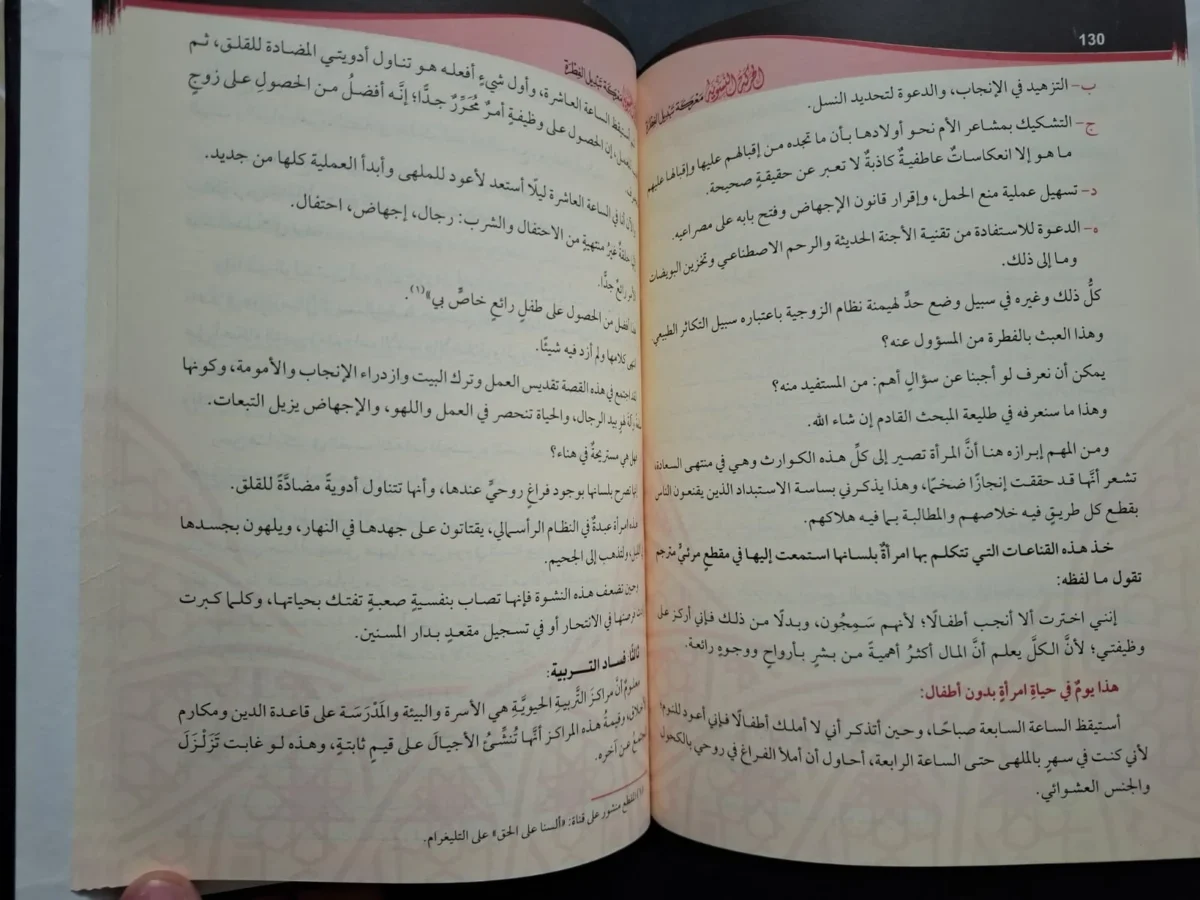 130
الحركة النسوية معركة تبديل الفطرة
ب- التزهيد في الإنجاب، والدعوة لتحديد النسل.
ج- التشكيك بمشاعر الأم نحو أولادها بأن ما تجده من إقبالهم عليها وإقبالها عليهم
ما هو إلا انعكاساتٌ عاطفيةٌ كاذبةٌ لا تعبر عن حقيقةٍ صحيحة.
د- تسهيل عملية منع الحمل، وإقرار قانون الإجهاض وفتح بابه على مصراعيه.
ه- الدعوة للاستفادة من تقنية الأجنة الحديثة والرحم الاصطناعي وتخزين البويضات
وما إلى ذلك.
كلُّ ذلك وغيره في سبيل وضع حدٍّ لهيمنة نظام الزوجية باعتباره سبيل التكاثر الطبيعي
وهذا العبث بالفطرة من المسؤول عنه؟
يمكن أن نعرف لو أجبنا عن سؤالٍ أهم: من المستفيد منه؟
وهذا ما سنعرفه في طليعة المبحث القادم إن شاء الله.
ومن المهم إبرازه هنا أنَّ المرأة تصير إلى كلِّ هذه الكوارث وهي في منتهى السعادة
تشعر أنَّها قد حققت إنجازًا ضخمًا، وهذا يذكرني بساسة الاستبداد الذين يقنعون الناس
بقطع كل طريقٍ فيه خلاصهم والمطالبة بما فيه هلاكهم.
خذ هذه القناعات التي تتكلم بها امرأةٌ بلسانها استمعت إليها في مقطعٍ مرئيٍّ مترجم
تقول ما لفظه:
إنني اخترت ألا أنجب أطفالًا؛ لأنهم سَمِجُون، وبدلًا من ذلك فإني أركز على
وظيفتي؛ لأنَّ الكلَّ يعلم أنَّ المال أكثرُ أهميةً من بشرٍ بأرواحٍ ووجوهٍ رائعة.
هذا يومٌ في حياةِ امرأةٍ بدون أطفال:
أستيقظ الساعة السابعة صباحًا، وحين أتذكر أني لا أملك أطفالًا فإني أعود للنوم؛
لأني كنت في سهرٍ بالملهى حتى الساعة الرابعة، أحاول أن أملأ الفراغ في روحي بالكحول
والجنس العشوائي.
معركة تبديل الفطرة
أستيقظ الساعة العاشرة، وأول شيءٍ أفعله هو تناول أدويتي المضادة للقلق، ثم
إن الحصول على وظيفةٍ أمرٌ مُحَرِّرٌ جدًّا؛ إنَّه أفضلُ من الحصولِ على زوجٍ
في الساعة العاشرة ليلًا أستعد لأعود للملهى وأبدأ العملية كلها من جديد.
غيرُ منتهيةٍ من الاحتفال والشرب: رجال، إجهاض، احتفال.
رائعٌ جدًّا.
أفضل من الحصول على طفلٍ رائعٍ خاصٍّ بي»(١).
كلامها ولم أزد فيه شيئًا.
اجتمع في هذه القصة تقديس العمل وترك البيت وازدراء الإنجاب والأمومة، وكونها
بيد الرجال، والحياة تنحصر في العمل واللهو، والإجهاض يزيل التبعات.
هي مستريحةٌ في هناء؟
تصرح بلسانها بوجود فراغٍ روحيٍّ عندها، وأنها تتناول أدويةً مضادَّةً للقلق.
امرأة عبدةٌ في النظام الرأسمالي، يقتاتون على جهدها في النهار، ويلهون بجسدها
ولتذهب إلى الجحيم.
وحين تضعف هذه النشوة فإنها تصاب بنفسيةٍ صعبةٍ تفتك بحياتها، وكلما كبرت
فرصتها في الانتحار أو في تسجيل مقعدٍ بدار المسنين.
ثالثًا: فساد التربية:
معلومٌ أنَّ مراكزَ التَّربيةِ الحيويَّةِ هي الأسرة والبيئة والمَدْرَسَة على قاعدة الدين ومكارم
وقيمةُ هذه المراكز أنَّها تُنشِّئُ الأجيالَ على قيمٍ ثابتةٍ، وهذه لو غابت تَزَلْزَلَ
عن آخره.
(١) المقطع منشور على قناة: «ألسنا على الحق» على التليغرام.